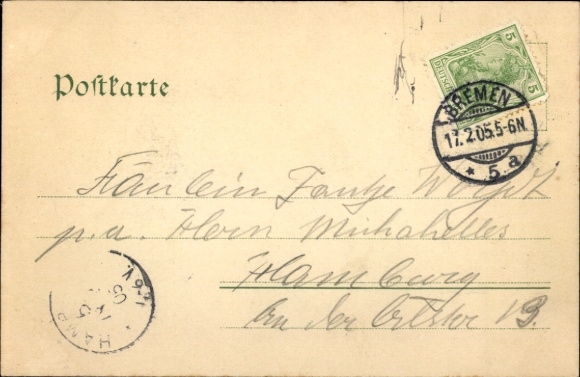 Postkarte
5 5
DEUTSCHES
BREMEN
17.2.05.5-6N.
* 5.a
Fräulein Antje
p. a. Herrn Michahelles
Hamburg
An der Alster 13.
HAMB